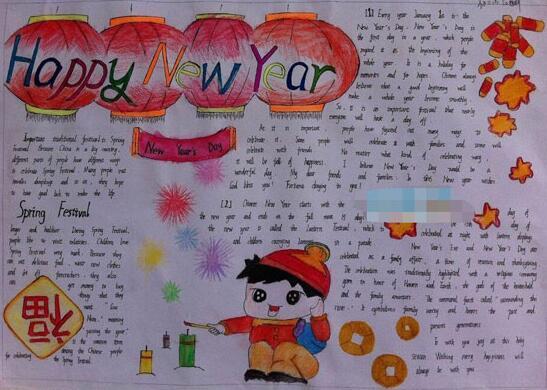 Happy New Year
[1] Every year January 1st is the
New Year's Day. New Year's Day is
the first day in a year, which people
regard it as the beginning of the
whole year. It is a holiday for
memories and for hopes. Chinese always
believe what a good beginning will
make a whole year become smoothly.
So it is an important festival that nearly
everyone will have a day off.
New Year's Day
As it is important people have figured out many ways to
celebrate it. Some people celebrate with families and some will
celebrate with friends. No matter what kind of celebrating way,
it will be full of happiness. I believe New Year's Day would be a
wonderful day. My dear friends and families
God bless you! Fortune
Important traditional festival is Spring
Festival. Because China is a big country,
different parts of people have different ways
to celebrate Spring Festival. Many people eat
dumplings and so on, they hope
to have good luck to make the life
Spring Festival
longer and healthier. During Spring Festival,
people like to visit relatives. Children love
Spring Festival very much. Because they
can eat delicious food, wear new clothes
and be off firecrackers. they also
can get money to buy
things what they
want.
"meaning
passing the year"
is the common term
among the Chinese people
for celebrating the Spring Festival.
福
[2] Chinese New Year starts with the
the new year and ends on the full moon
the new year is called the Lantern Festival, which
and children carrying lanterns in a parade.
day of
day of
celebrated at night with lantern displays
New Year's Eve and New Year's Day are
celebrated as a family affair, a time of reunion and thanksgiving
The celebration was traditionally highlighted with a religious ceremony
given in honor of Heaven and Earth, the gods of the household
and the family ancestors. The communal feast called "surrounding the
stove". It symbolizes family unity and honors the past and
present generations
To wish you joy at this holy
season. Wishing every happiness will
always be with you